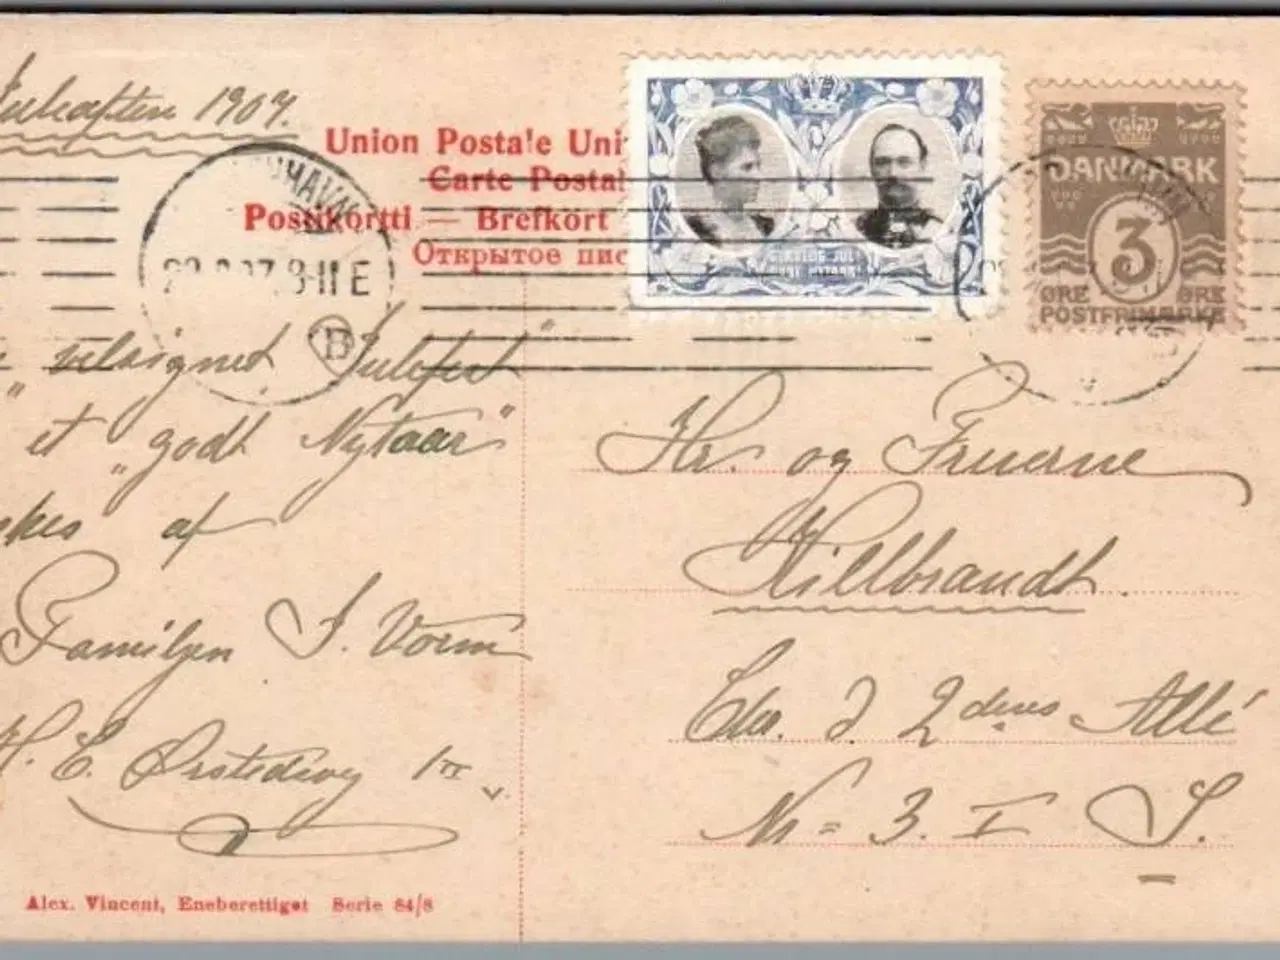 Juleaften 1907.
Union Postale Uni
Carte Postal
Postikortti — Brefkort
Открытое пис
8-11 E
B
DANMARK
3
ØRE ØRE
POSTFRIMÆRKE
velsignet Julefest"
et „godt Nytaar"
af
Familjen J. Vorm
H. C. Ørstedsvej 1
Hr. og Fruerne
Hillbrandt.
Chr. d. 2dens Allé
Nr = 3. I S.
Alex. Vincent, Eneberettiget Serie 84/8